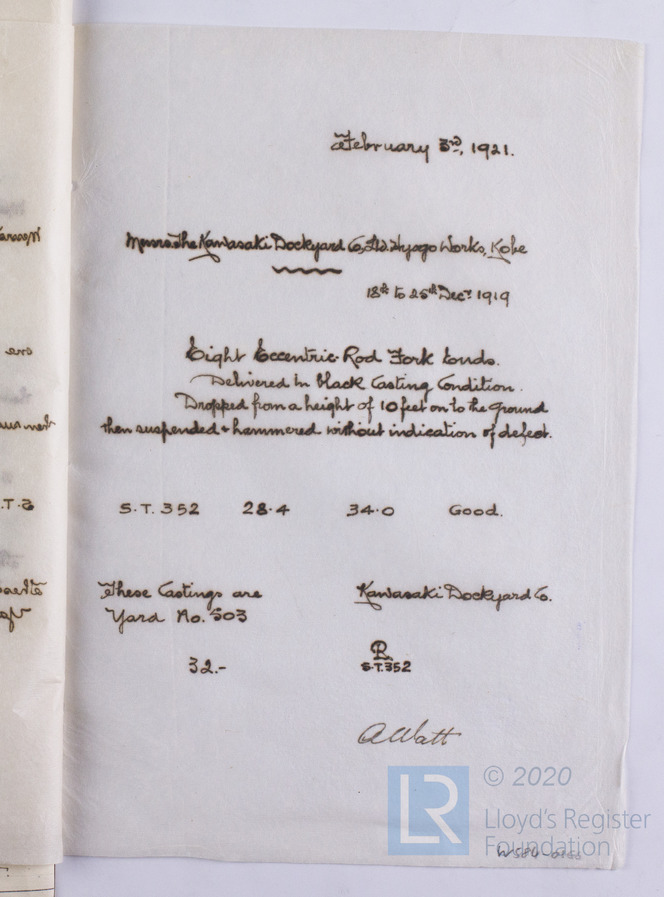 February 3rd, 1921.
Messrs. The Kawasaki Dockyard Co, Ltd. Hyogo Works, Kobe
18th to 25th Decr 1919
Eight Eccentric Rod Fork Ends.
Delivered In black Casting Condition.
Dropped from a height of 10 feet on to the ground
then suspended & hammered without indication of defect.
S.T. 352 28.4 34.0 Good.
These Castings are Kawasaki Dockyard Co.
Yard No. 503
32.- LR
S.T.352
A Watt
LR © 2020
Lloyd's Register
Foundation